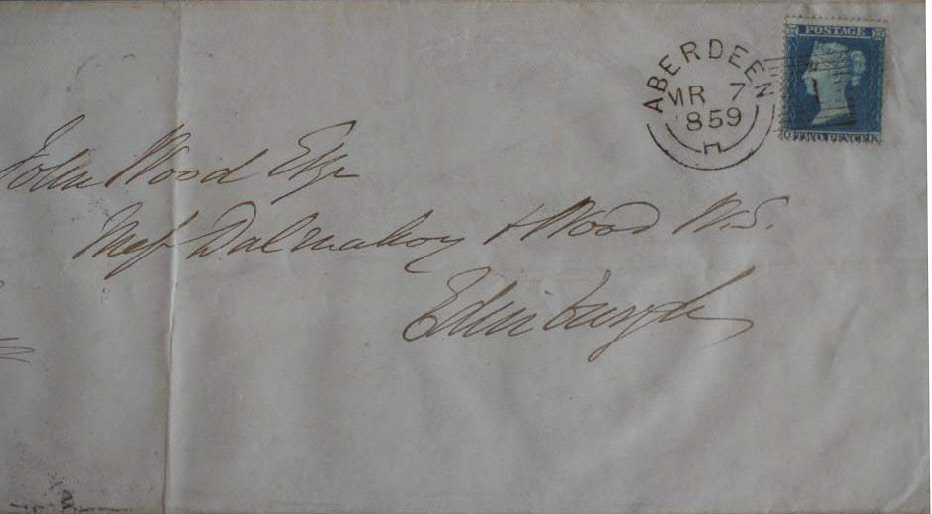 POSTAGE
TWO PENCE
ABERDEEN
MR 7
1859
John Wood Esqr
Mess Dalmahoy & Wood W.S.
Edinburgh